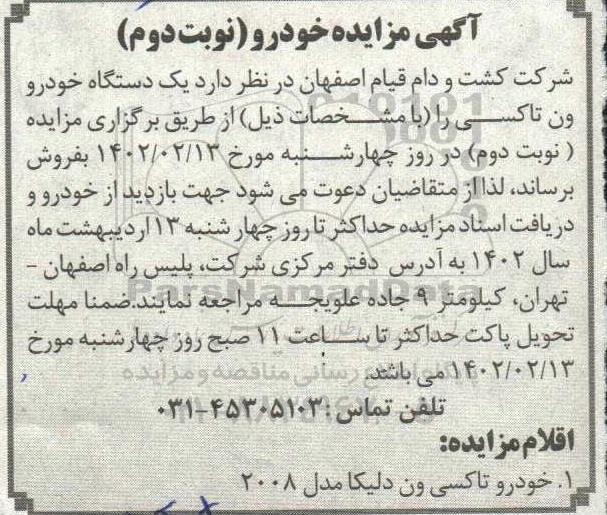 آگهی مزایده خودرو (نوبت دوم)
شرکت کشت و دام قیام اصفهان در نظر دارد یک دستگاه خودرو
ون تاکسی را (با مشخصات ذیل) از طریق برگزاری مزایده
( نوبت دوم) در روز چهارشنبه مورخ ۱۴۰۲/۰۲/۱۳ بفروش
برساند، لذا از متقاضیان دعوت می شود جهت بازدید از خودرو و
دریافت اسناد مزایده حداکثر تا روز چهار شنبه ۱۳ اردیبهشت ماه
سال ۱۴۰۲ به آدرس دفتر مرکزی شرکت، پلیس راه اصفهان -
تهران، کیلومتر ۹ جاده علویجه مراجعه نمایند.ضمنا مهلت
تحویل پاکت حداکثر تا ساعت ۱۱ صبح روز چهارشنبه مورخ
۱۴۰۲/۰۲/۱۳ می باشد.
تلفن تماس : ۴۵۳۰۵۱۰۳-۰۳۱
اقلام مزایده:
۱. خودرو تاکسی ون دلیکا مدل ۲۰۰۸
ParsNamadData